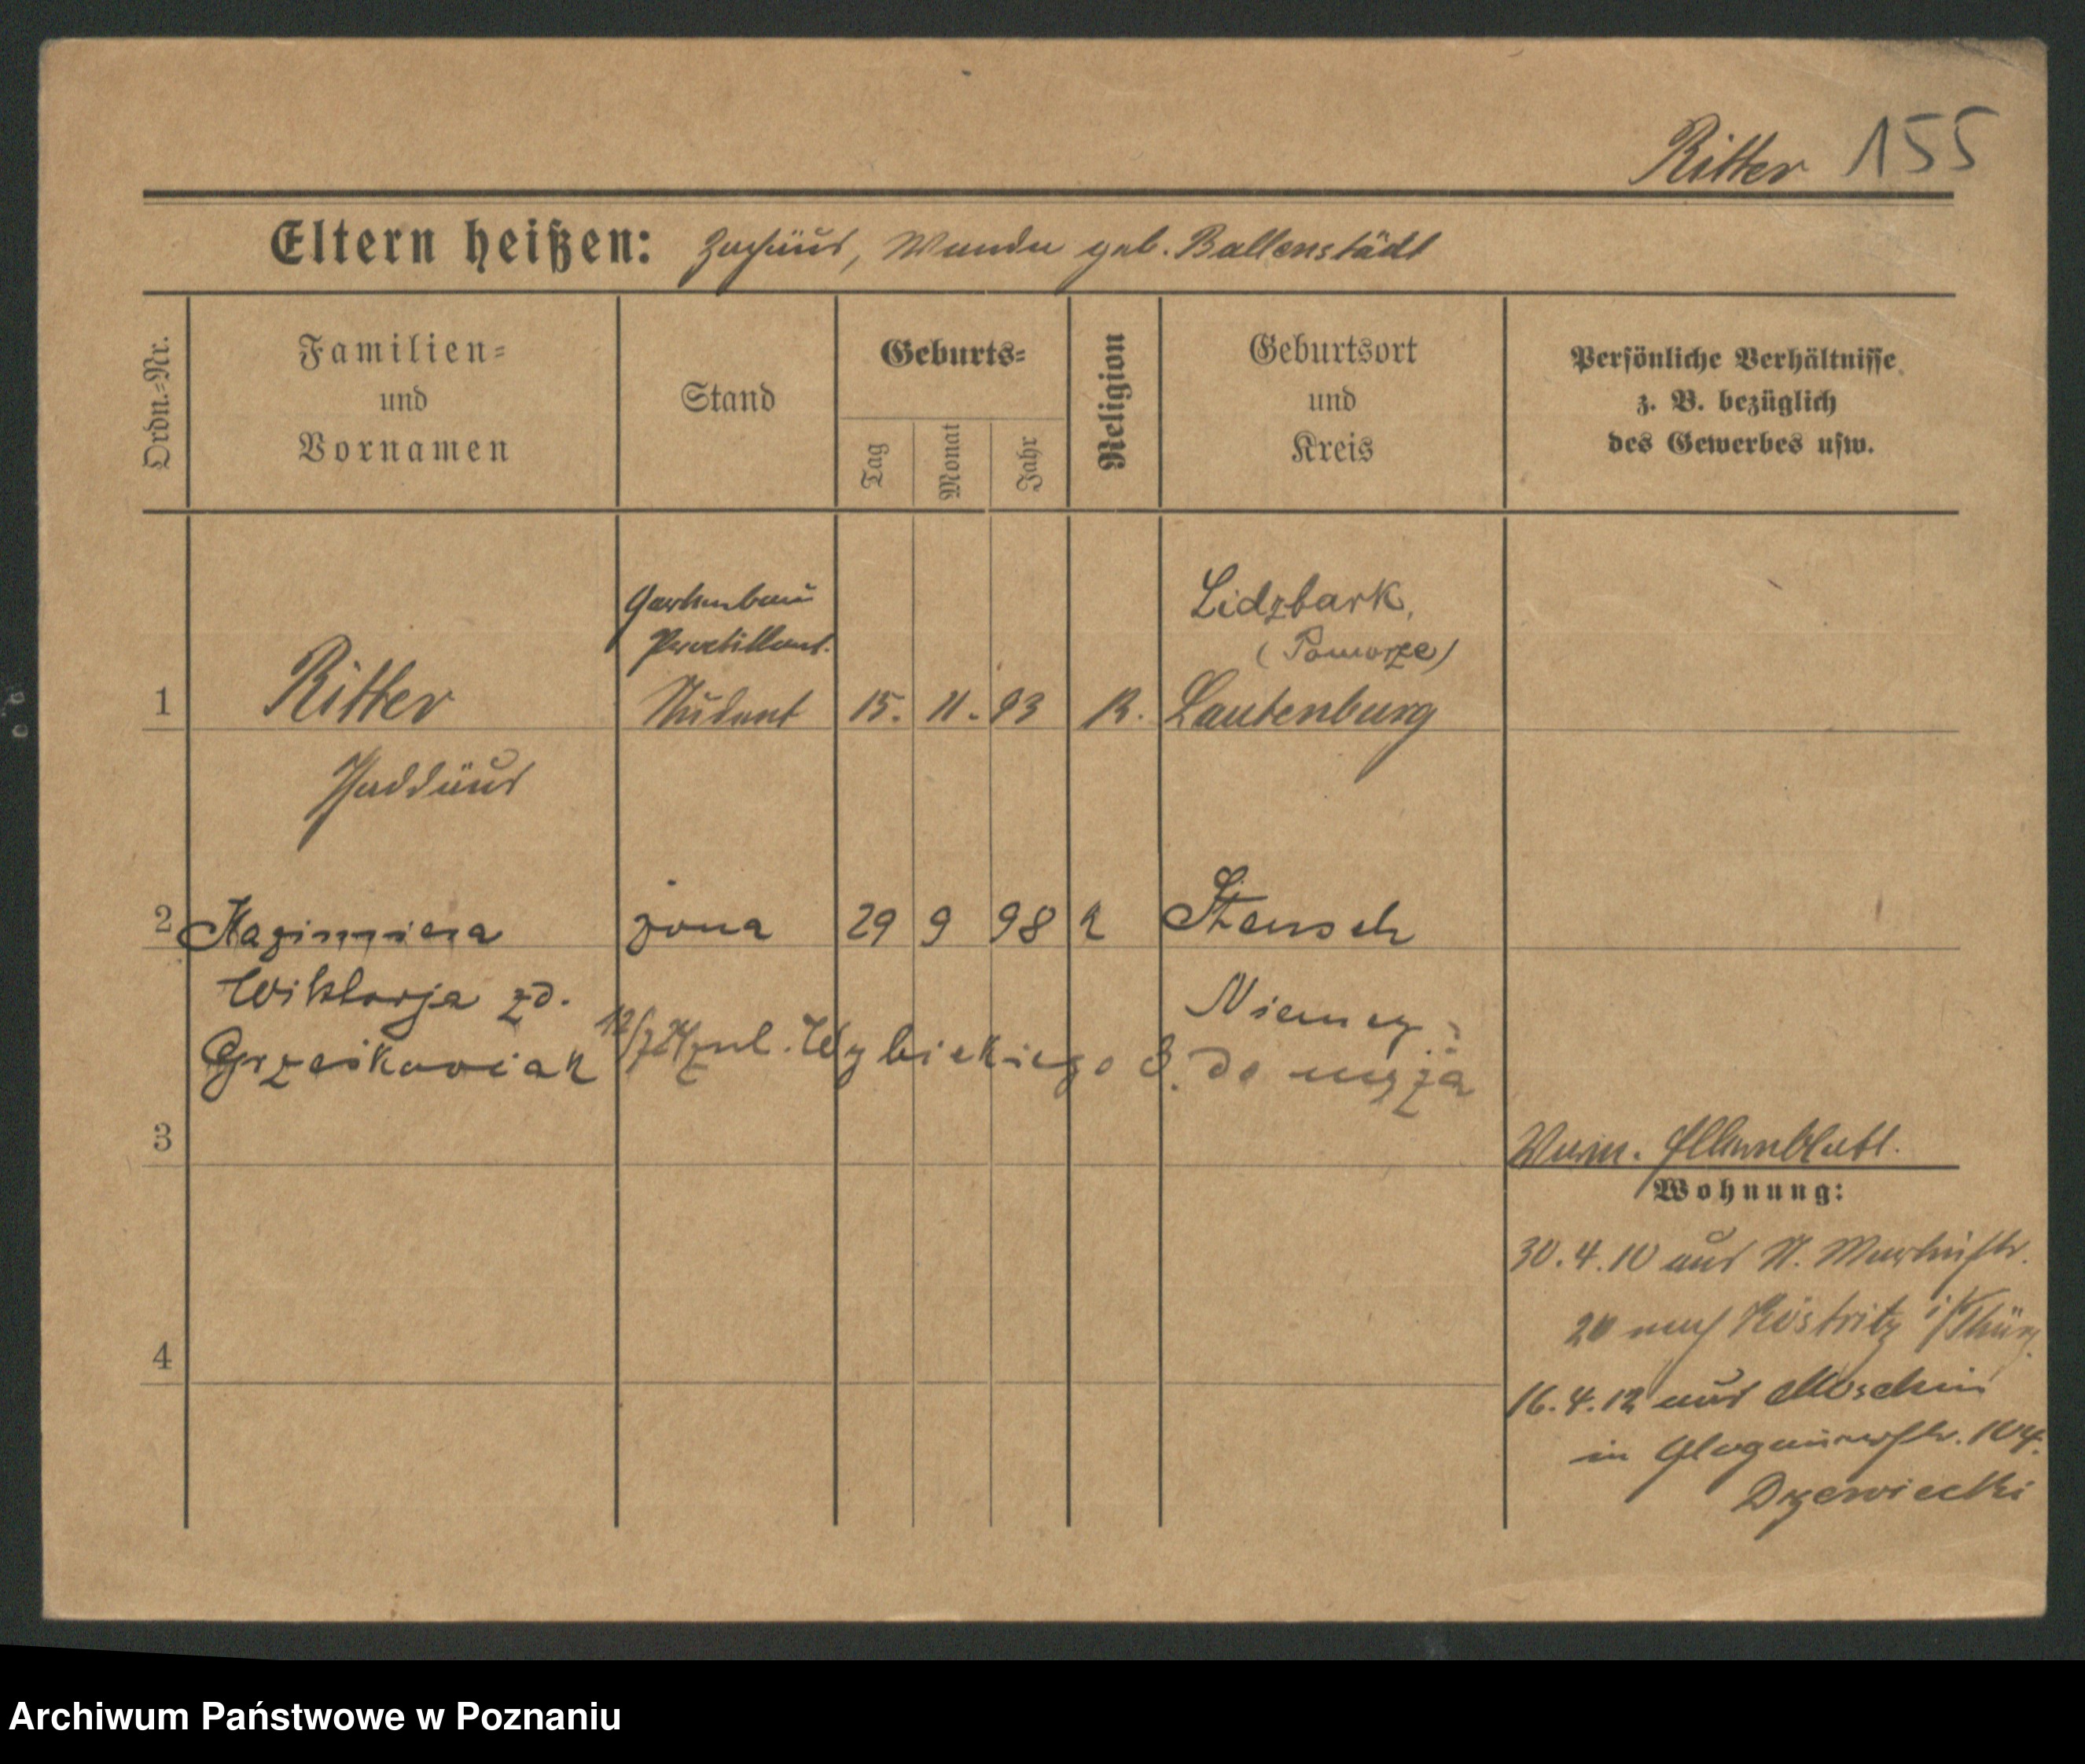 Ritter 155
Eltern heißen: Zachäus, Wanda geb. Ballenstädt
Ordn.-Nr.
Familien-
und
Vornamen
Stand
Geburts-
Tag
Monat
Jahr
Religion
Geburtsort
und
Kreis
Persönliche Verhältnisse
z. B. bezüglich
des Gewerbes usw.
Gartenbau
Lidzbark,
(Pomorze)
1 Ritter Student 15. 11. 93 K. Lautenburg
Thaddäus
2 Kazimiera żona 29 9 98 k Stensch
Wiktorja zd.
Niemcy
Grześkowiak
ul. Wybickiego 3. do męża
3
Wohnung:
30.4.10 aus N. Martinstr.
20 nach Köstritz i/Thür.
4
16.4.12 aus Moschin
in Glogauerstr. 104.
Drzewiecki
Archiwum Państwowe w Poznaniu